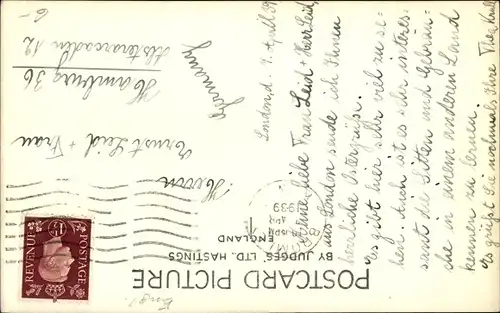 POSTCARD PICTURE
BY JUDGES' LTD. HASTINGS
ENGLAND
London, d. 7. April 39
Meine liebe Frau Leid + Herr Leid,
aus London sende ich Ihnen
herzliche Ostergrüße.
Es gibt hier sehr viel zu se-
hen. Auch ist es sehr interes-
sant die Sitten und Gebräu-
che in einem anderen Land
kennen zu lernen.
Es grüßt Sie nochmal Ihre Thea
Herrn
Ernst Leid + Frau
Hamburg 36
Alsterarcaden 12
Germany
1939
APR
POSTAGE
REVENUE
1½D
6-
Engl.